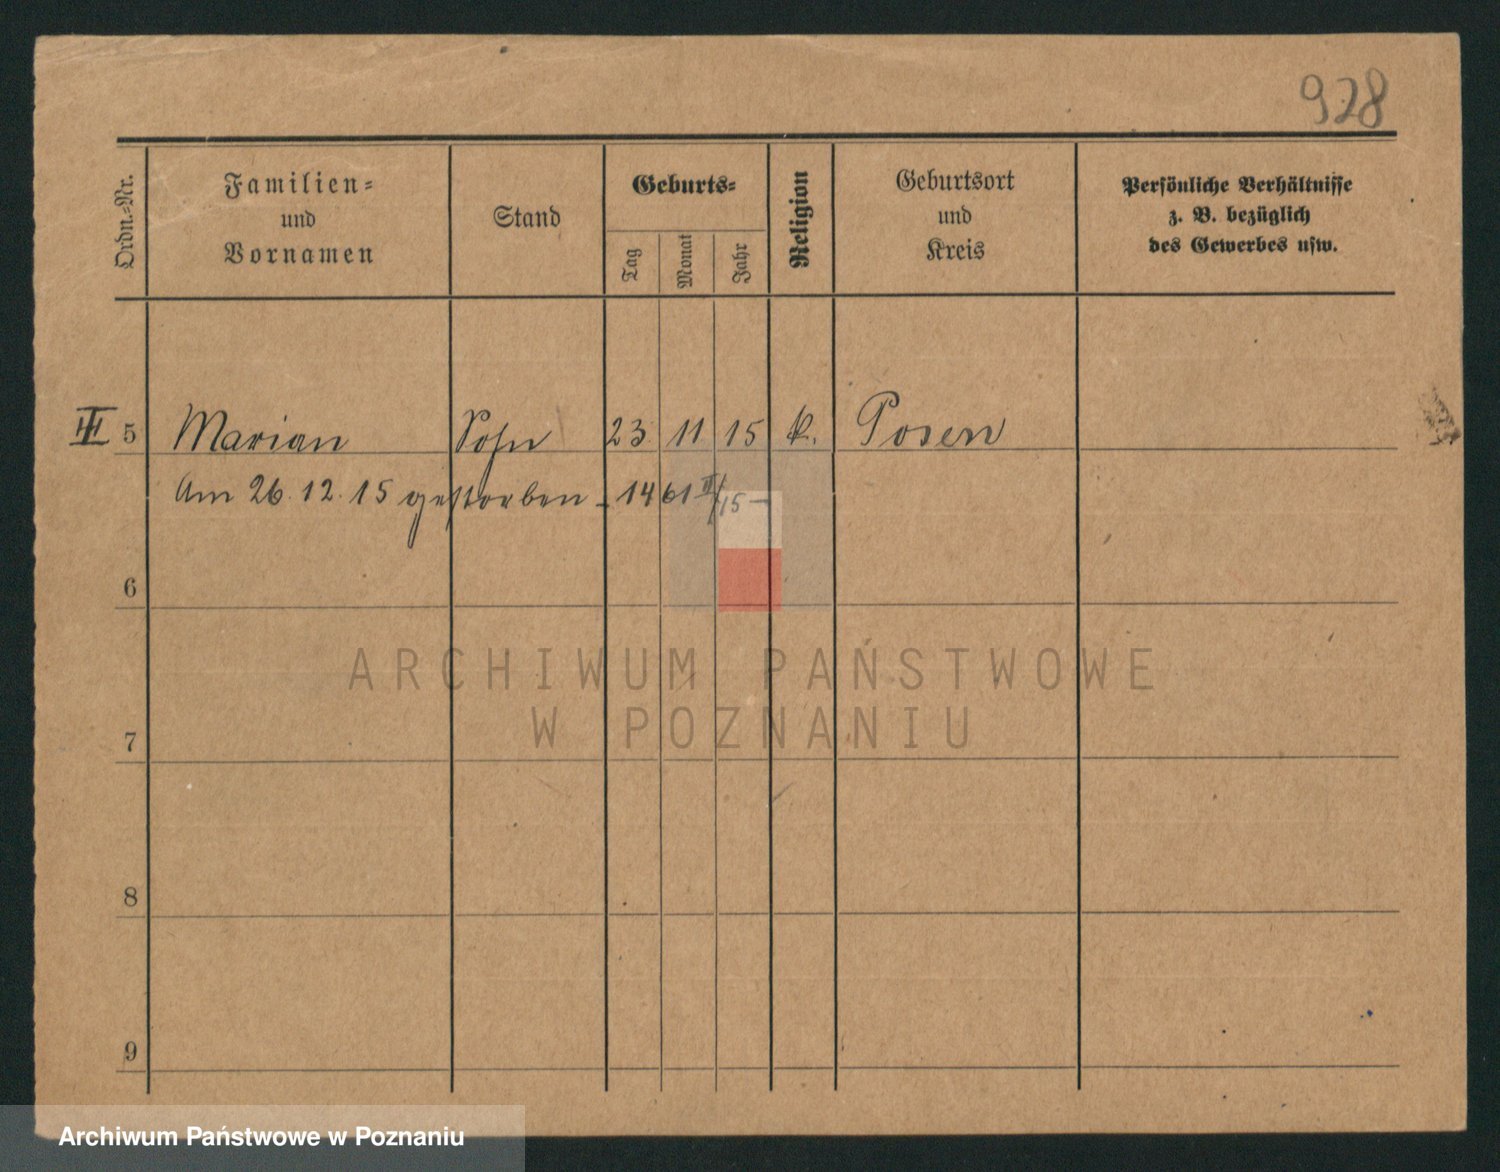 928
Ordn.-Nr.
Familien-
und
Vornamen
Stand
Geburts-
Tag
Monat
Jahr
Religion
Geburtsort
und
Kreis
Persönliche Verhältnisse
z. B. bezüglich
des Gewerbes usw.
III 5 Marian Sohn 23. 11. 15 k. Posen
Am 26.12.15 gestorben - 1461 II/15 -
6
7
8
9
ARCHIWUM PAŃSTWOWE
W POZNANIU
Archiwum Państwowe w Poznaniu